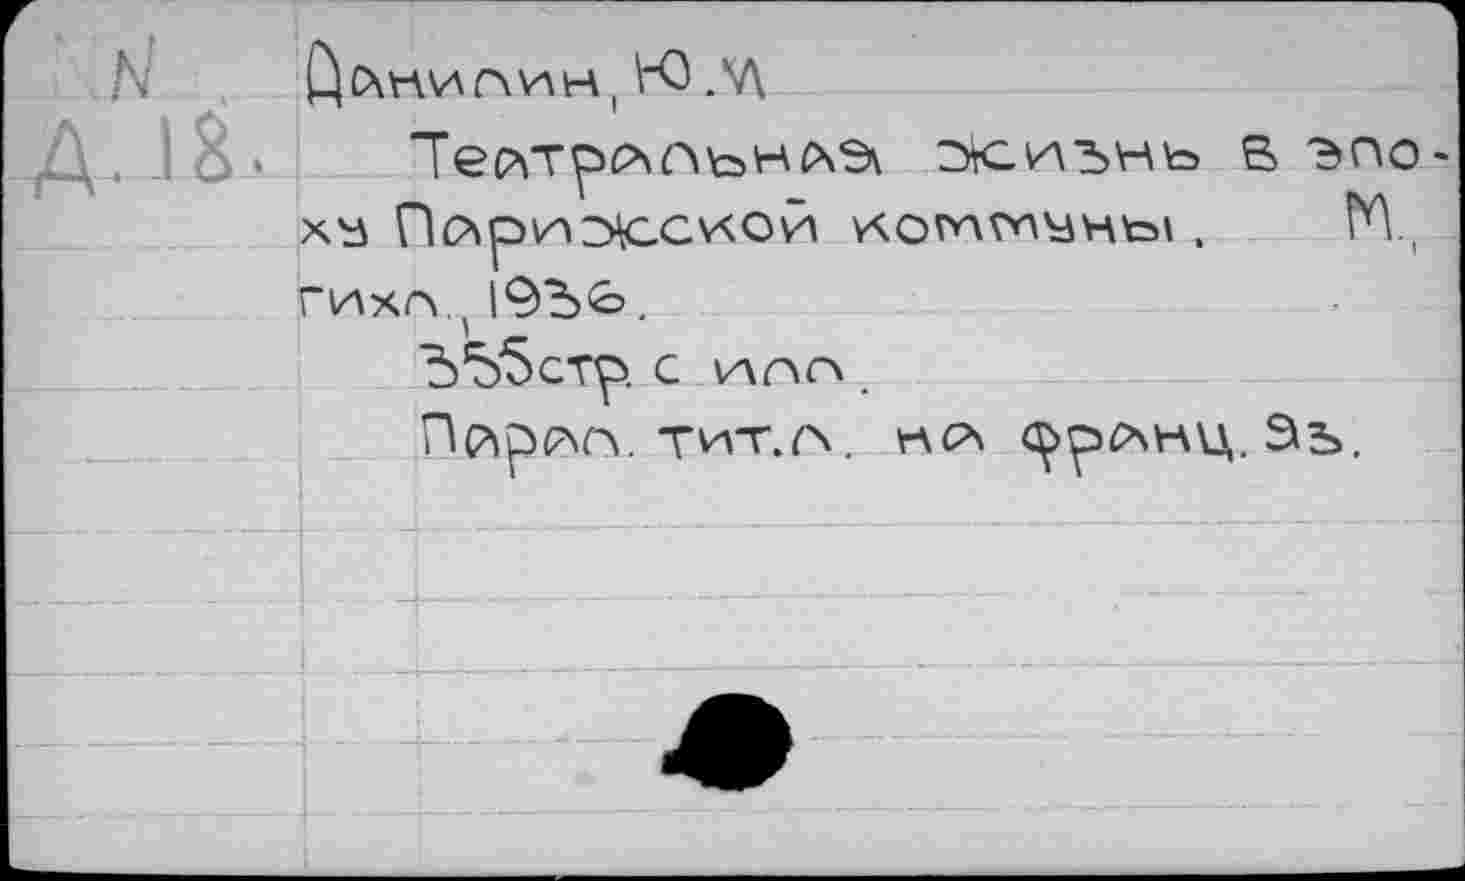 N Данилин, Ю.И
Д. 18. Театральная жизнь в эпо-
ху Парижской коммуны. М.,
гихл., 1936.
355стр. с илл.
Парал. тит.л. на франц. яз.